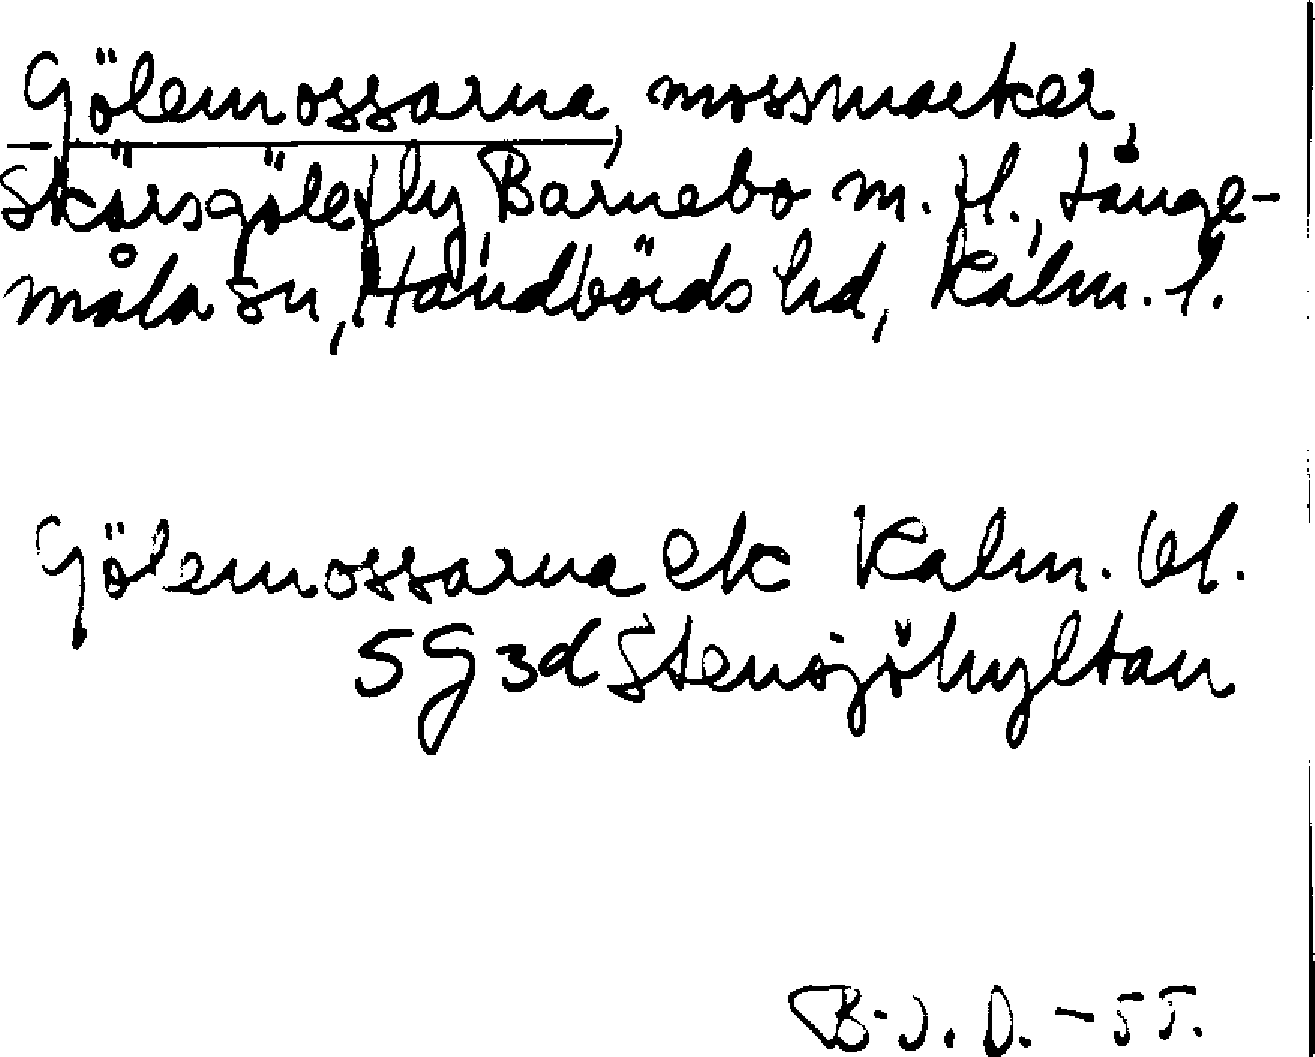 Gölemossarna, mossmarker,
Skärsgölefly Barnebo m. fl., Långe-
måla sn, Handbörds hd, Kalm. l.
Gölemossarna ek Kalm. bl.
5G3d Stensjöhyltan
B-J. D. - 55.